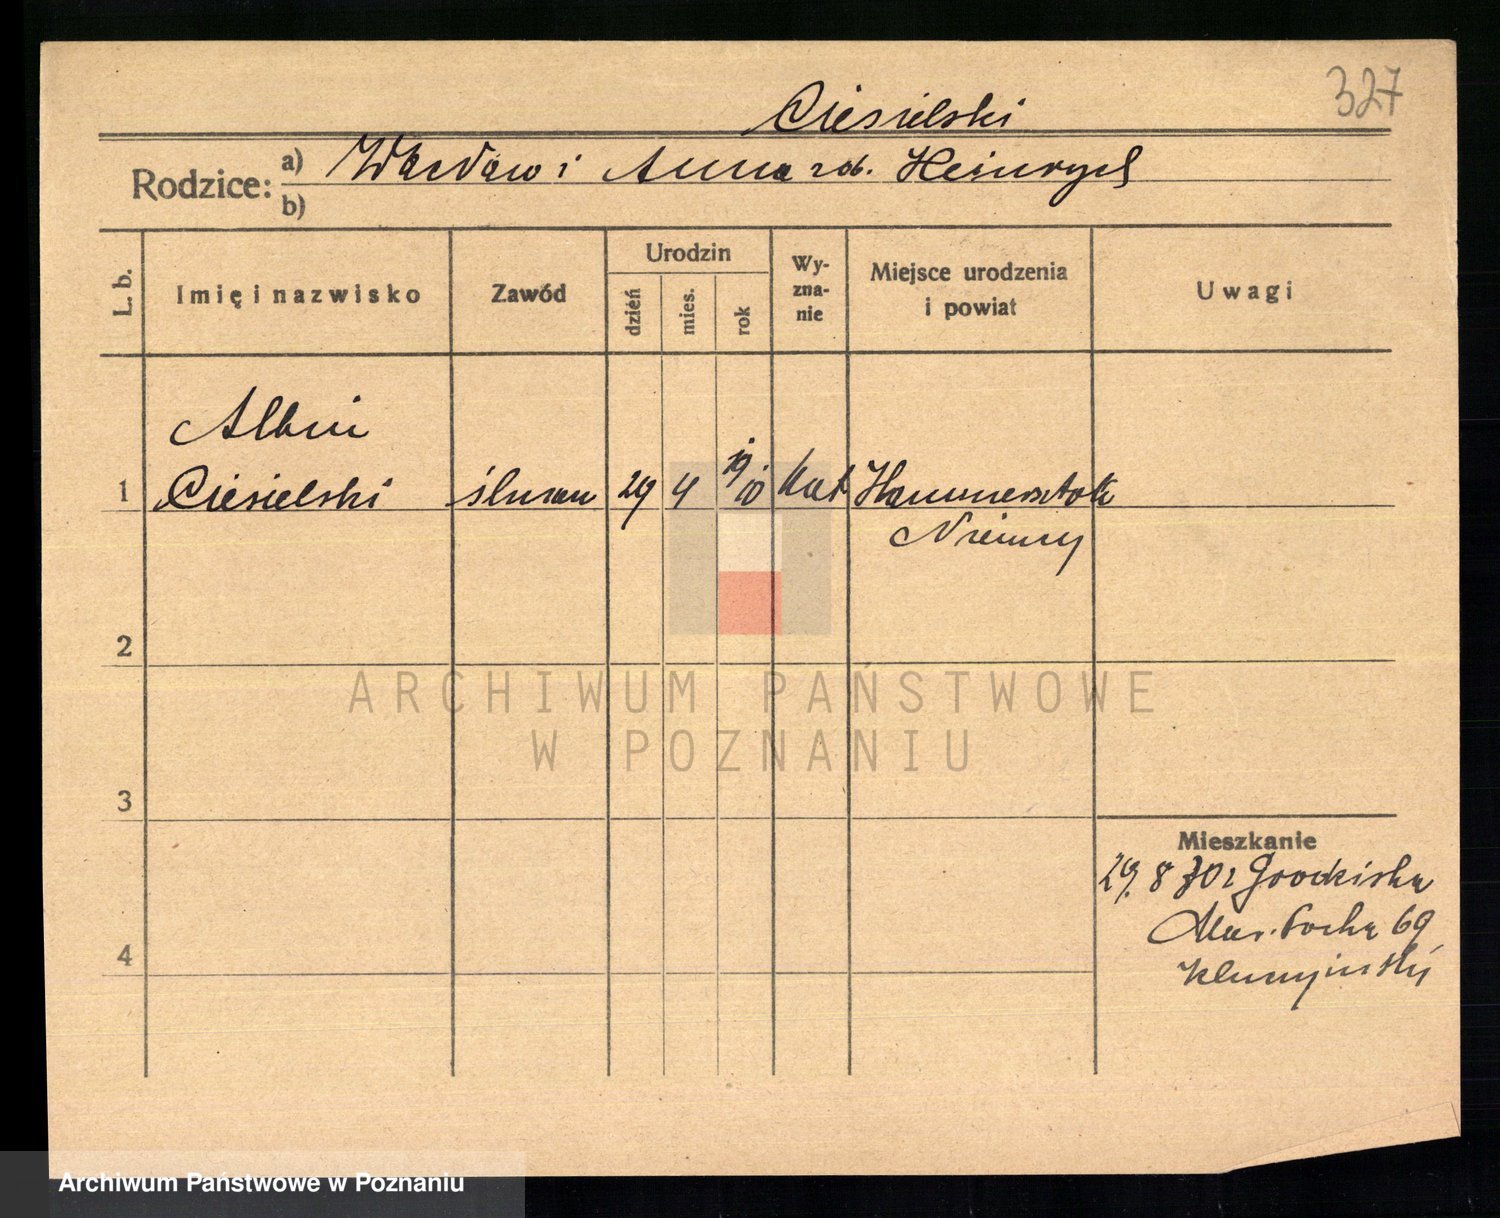 327
Ciesielski
Rodzice: a) Wacław i Anna rob. Heinrych
b)
L. b. Imię i nazwisko Zawód Urodzin dzień mies. rok Wy-zna-nie Miejsce urodzenia i powiat Uwagi
Albin
1 Ciesielski ślusarz 29 4 19 10 kat Hammerstok
Niemcy
2
ARCHIWUM PAŃSTWOWE
W POZNANIU
3
Mieszkanie
29. 8 30 Grodziska
Mar. Focha 69
4
Archiwum Państwowe w Poznaniu